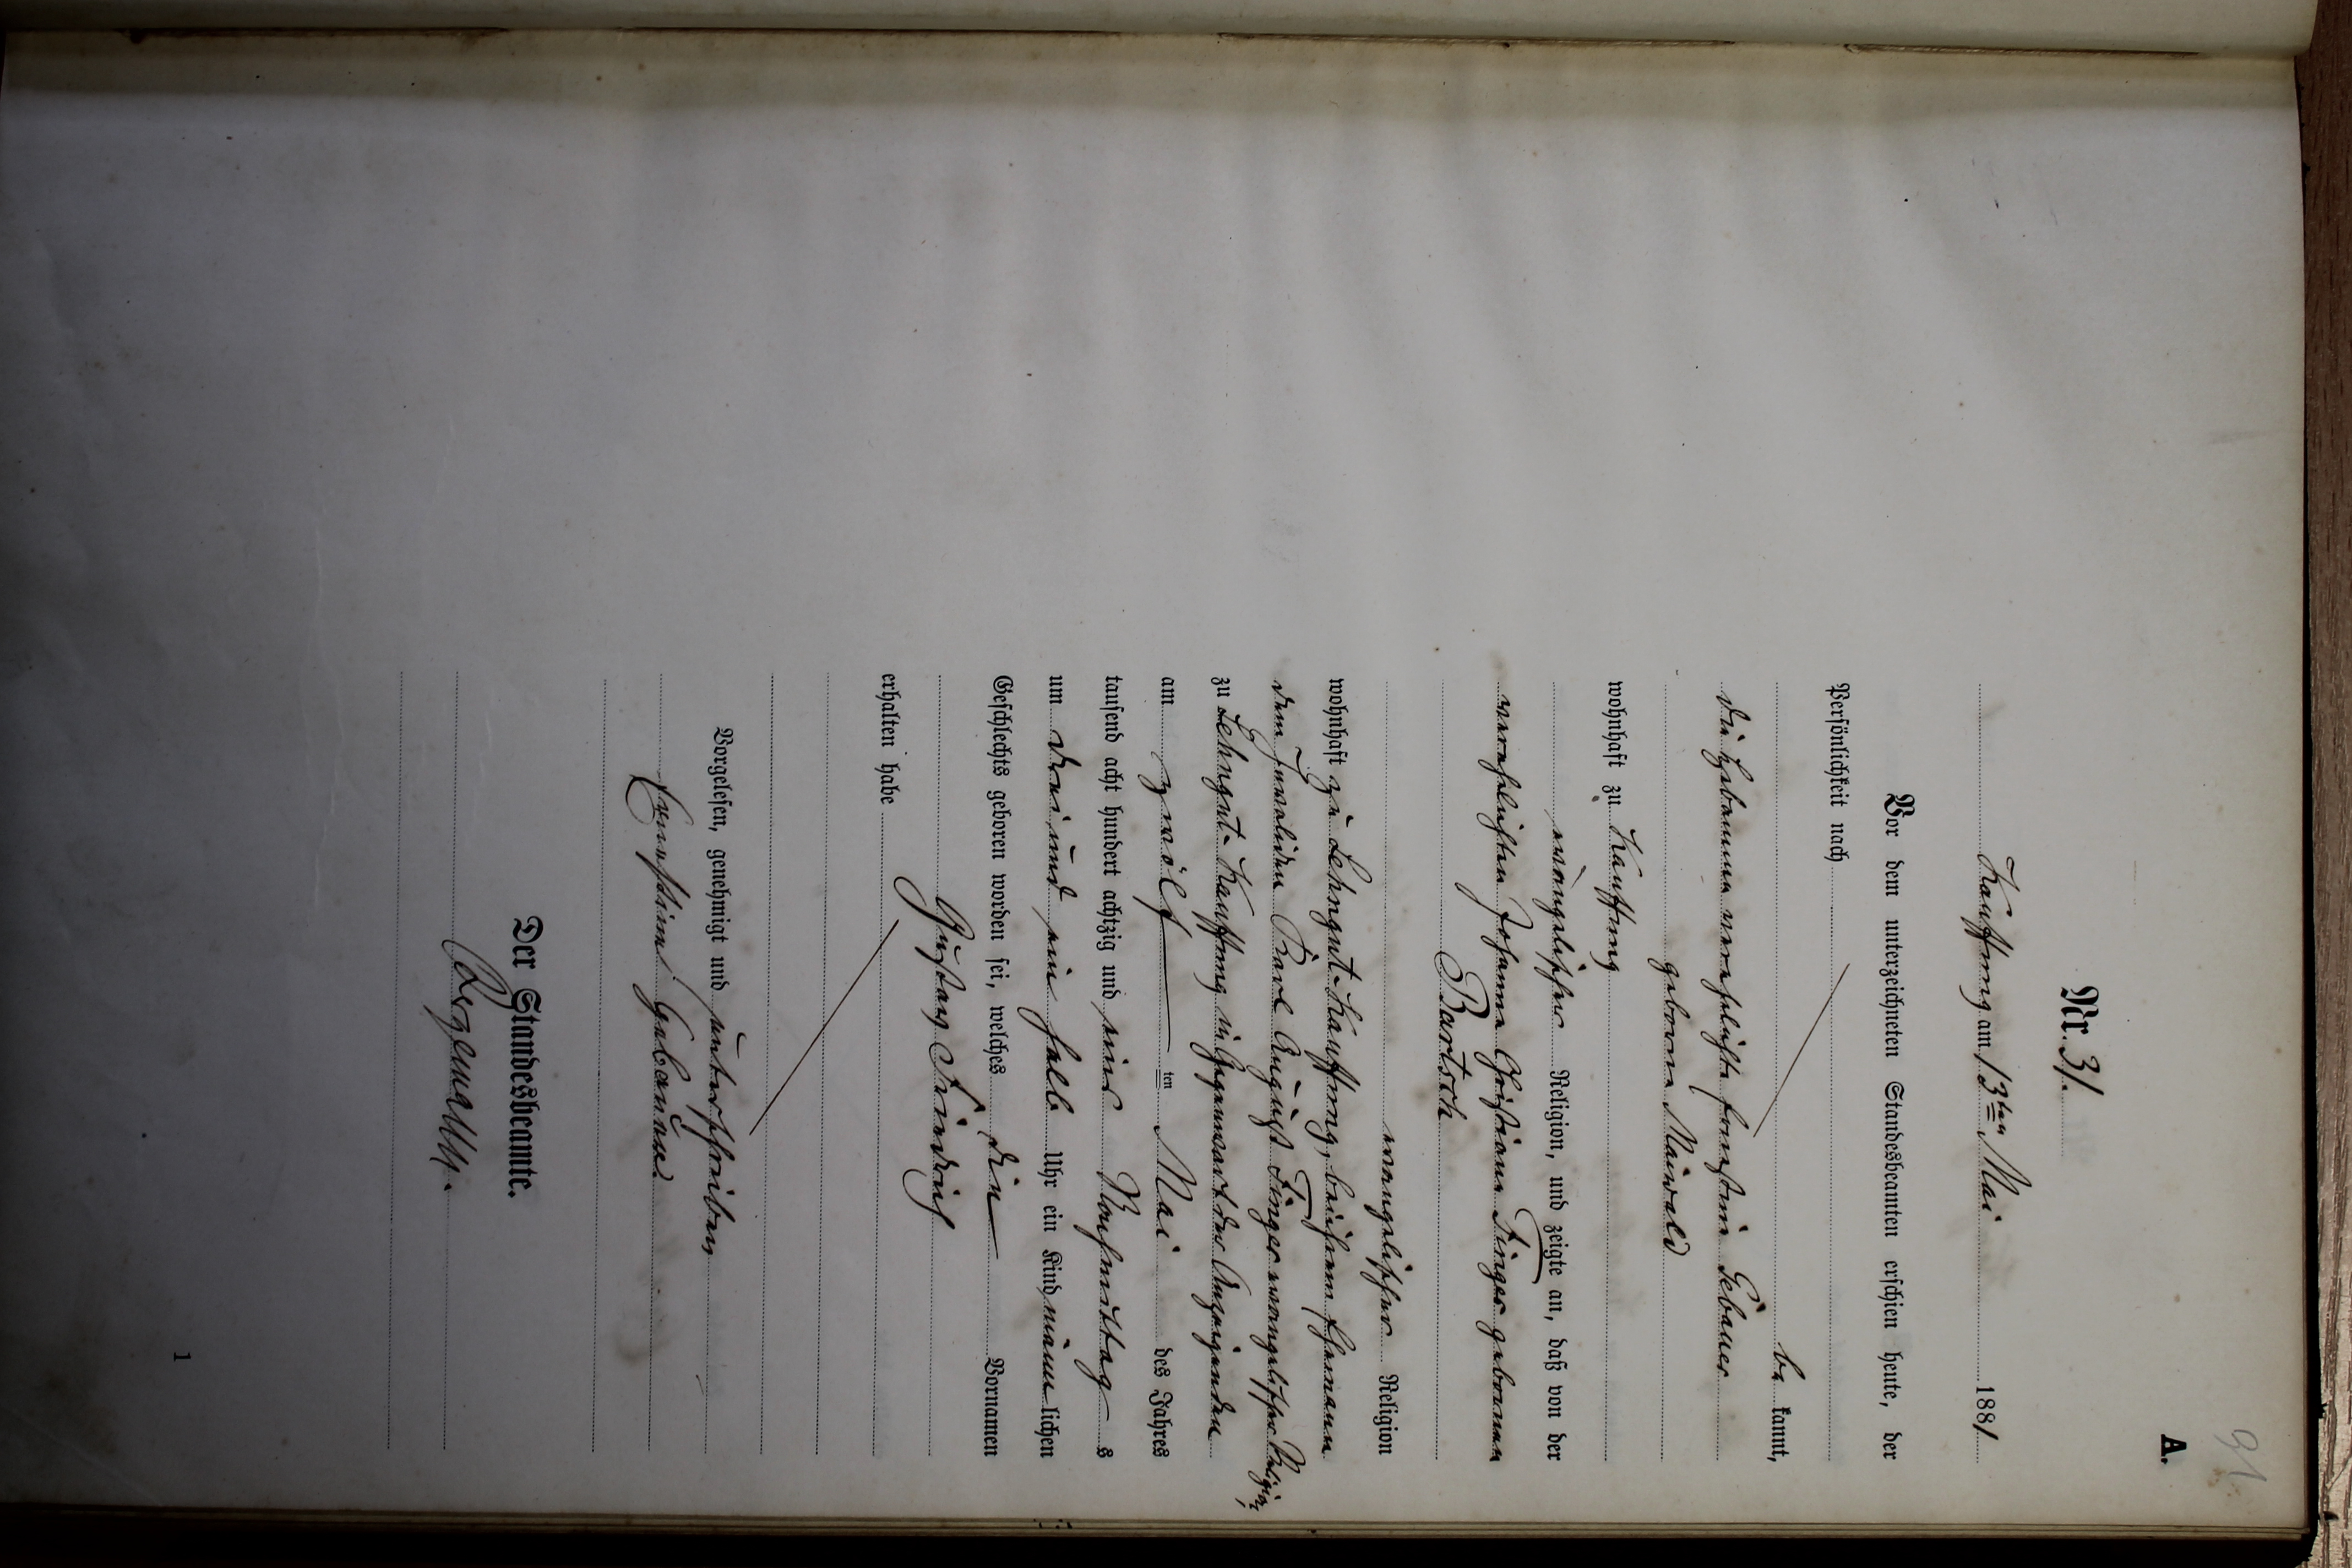 91
A.
Nr. 31.
Kauffung am 13ten Mai 1881
Vor dem unterzeichneten Standesbeamten erschien heute, der
Persönlichkeit nach
be kannt,
die Hebamme verehelichte Ernstine Gebauer
geborne Maiwald
wohnhaft zu Kauffung
evangelischer Religion, und zeigte an, daß von der
verehelichten Johanne Christiane Finger gebornen
Bartsch
evangelischer Religion
wohnhaft zu Lehngut-Kauffung, bei ihrem Ehemann
dem Invaliden Karl August Finger evangelischer Religion,
zu Lehngut-Kauffung in Gegenwart der Anzeigenden
am zwölf ten Mai des Jahres
tausend acht hundert achtzig und eins Nachmittag s
um drei und ein halb Uhr ein Kind männ lichen
Geschlechts geboren worden sei, welches die Vornamen
Gustav Friedrich
erhalten habe
Vorgelesen, genehmigt und unterschrieben
Ernestine Gebauer.
Der Standesbeamte.
1